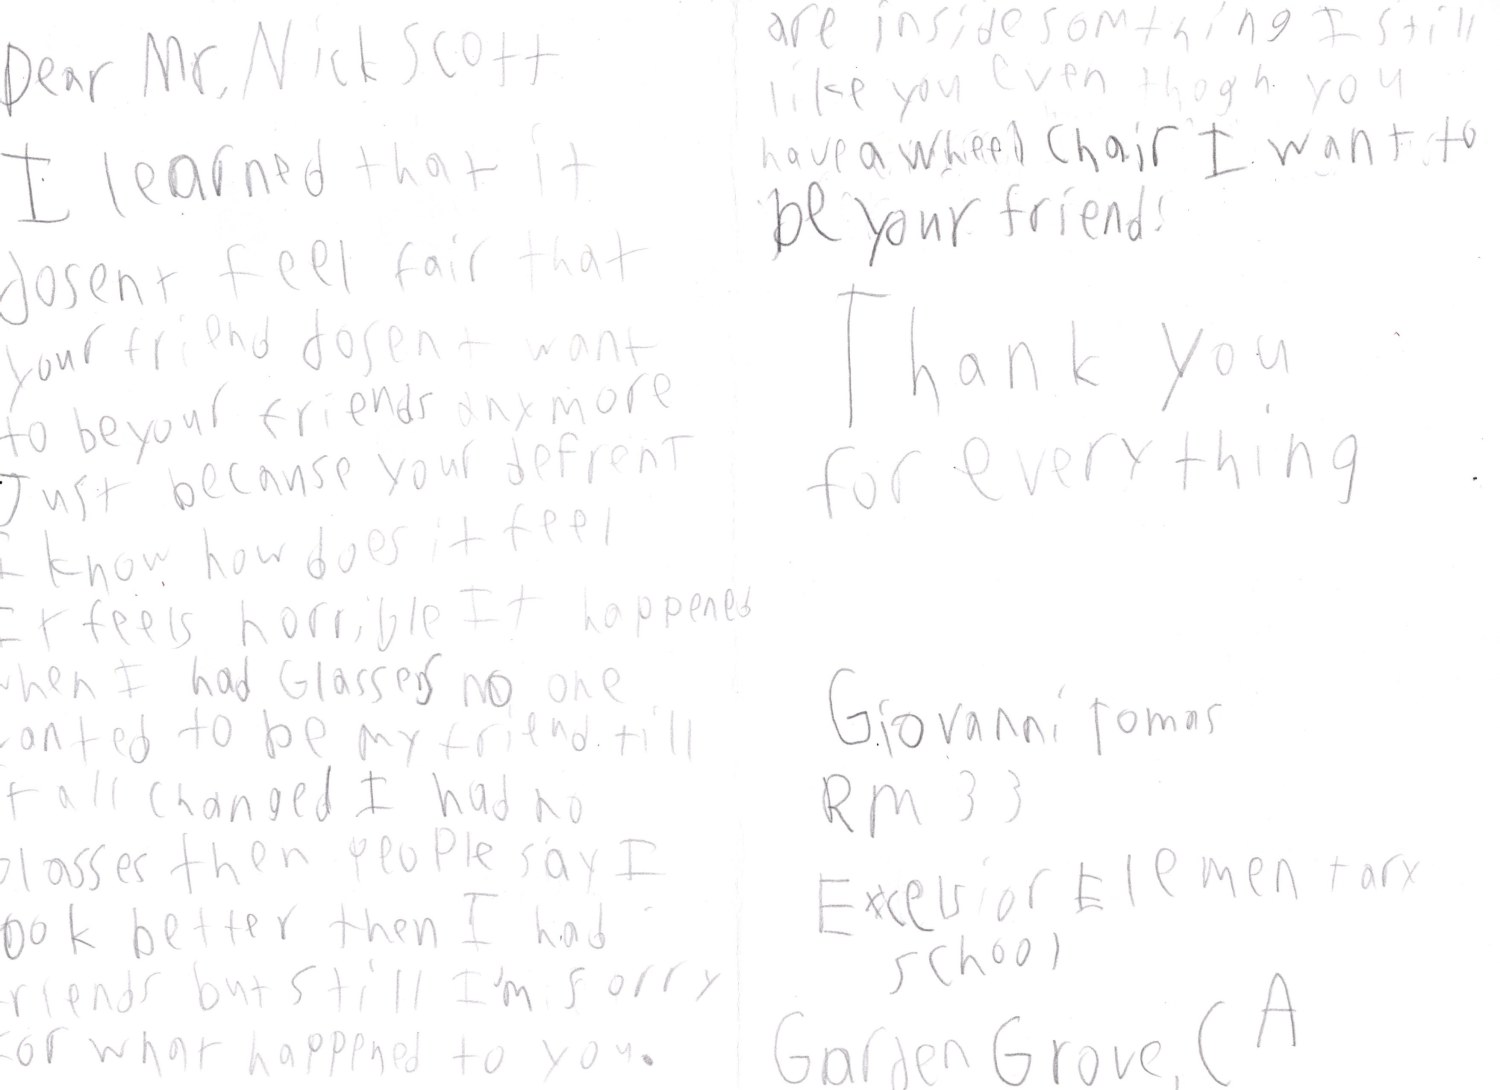 Dear Mr, Nick Scott
I learned that it
dosent feel fair that
your friend dosent want
to be your friends anymore
Just because your defrent
I know how does it feel
It feels horrible It happened
when I had Glasses no one
wanted to be my friend. till
it all changed I had no
glasses then people say I
look better then I had
friends but still I'm sorry
for what happened to you.
are inside somthing I still
like you even thogh you
have a wheel chair I want to
be your friend!
Thank you
for everything
Giovanni Tomas
RM 33
Excelsior Elementary
school
Garden Grove, CA